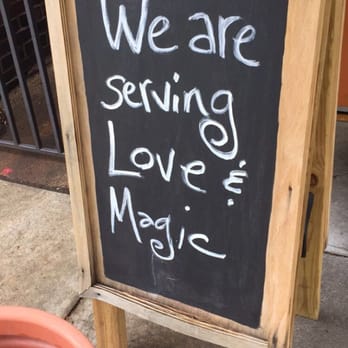 We are
serving
Love &
Magic